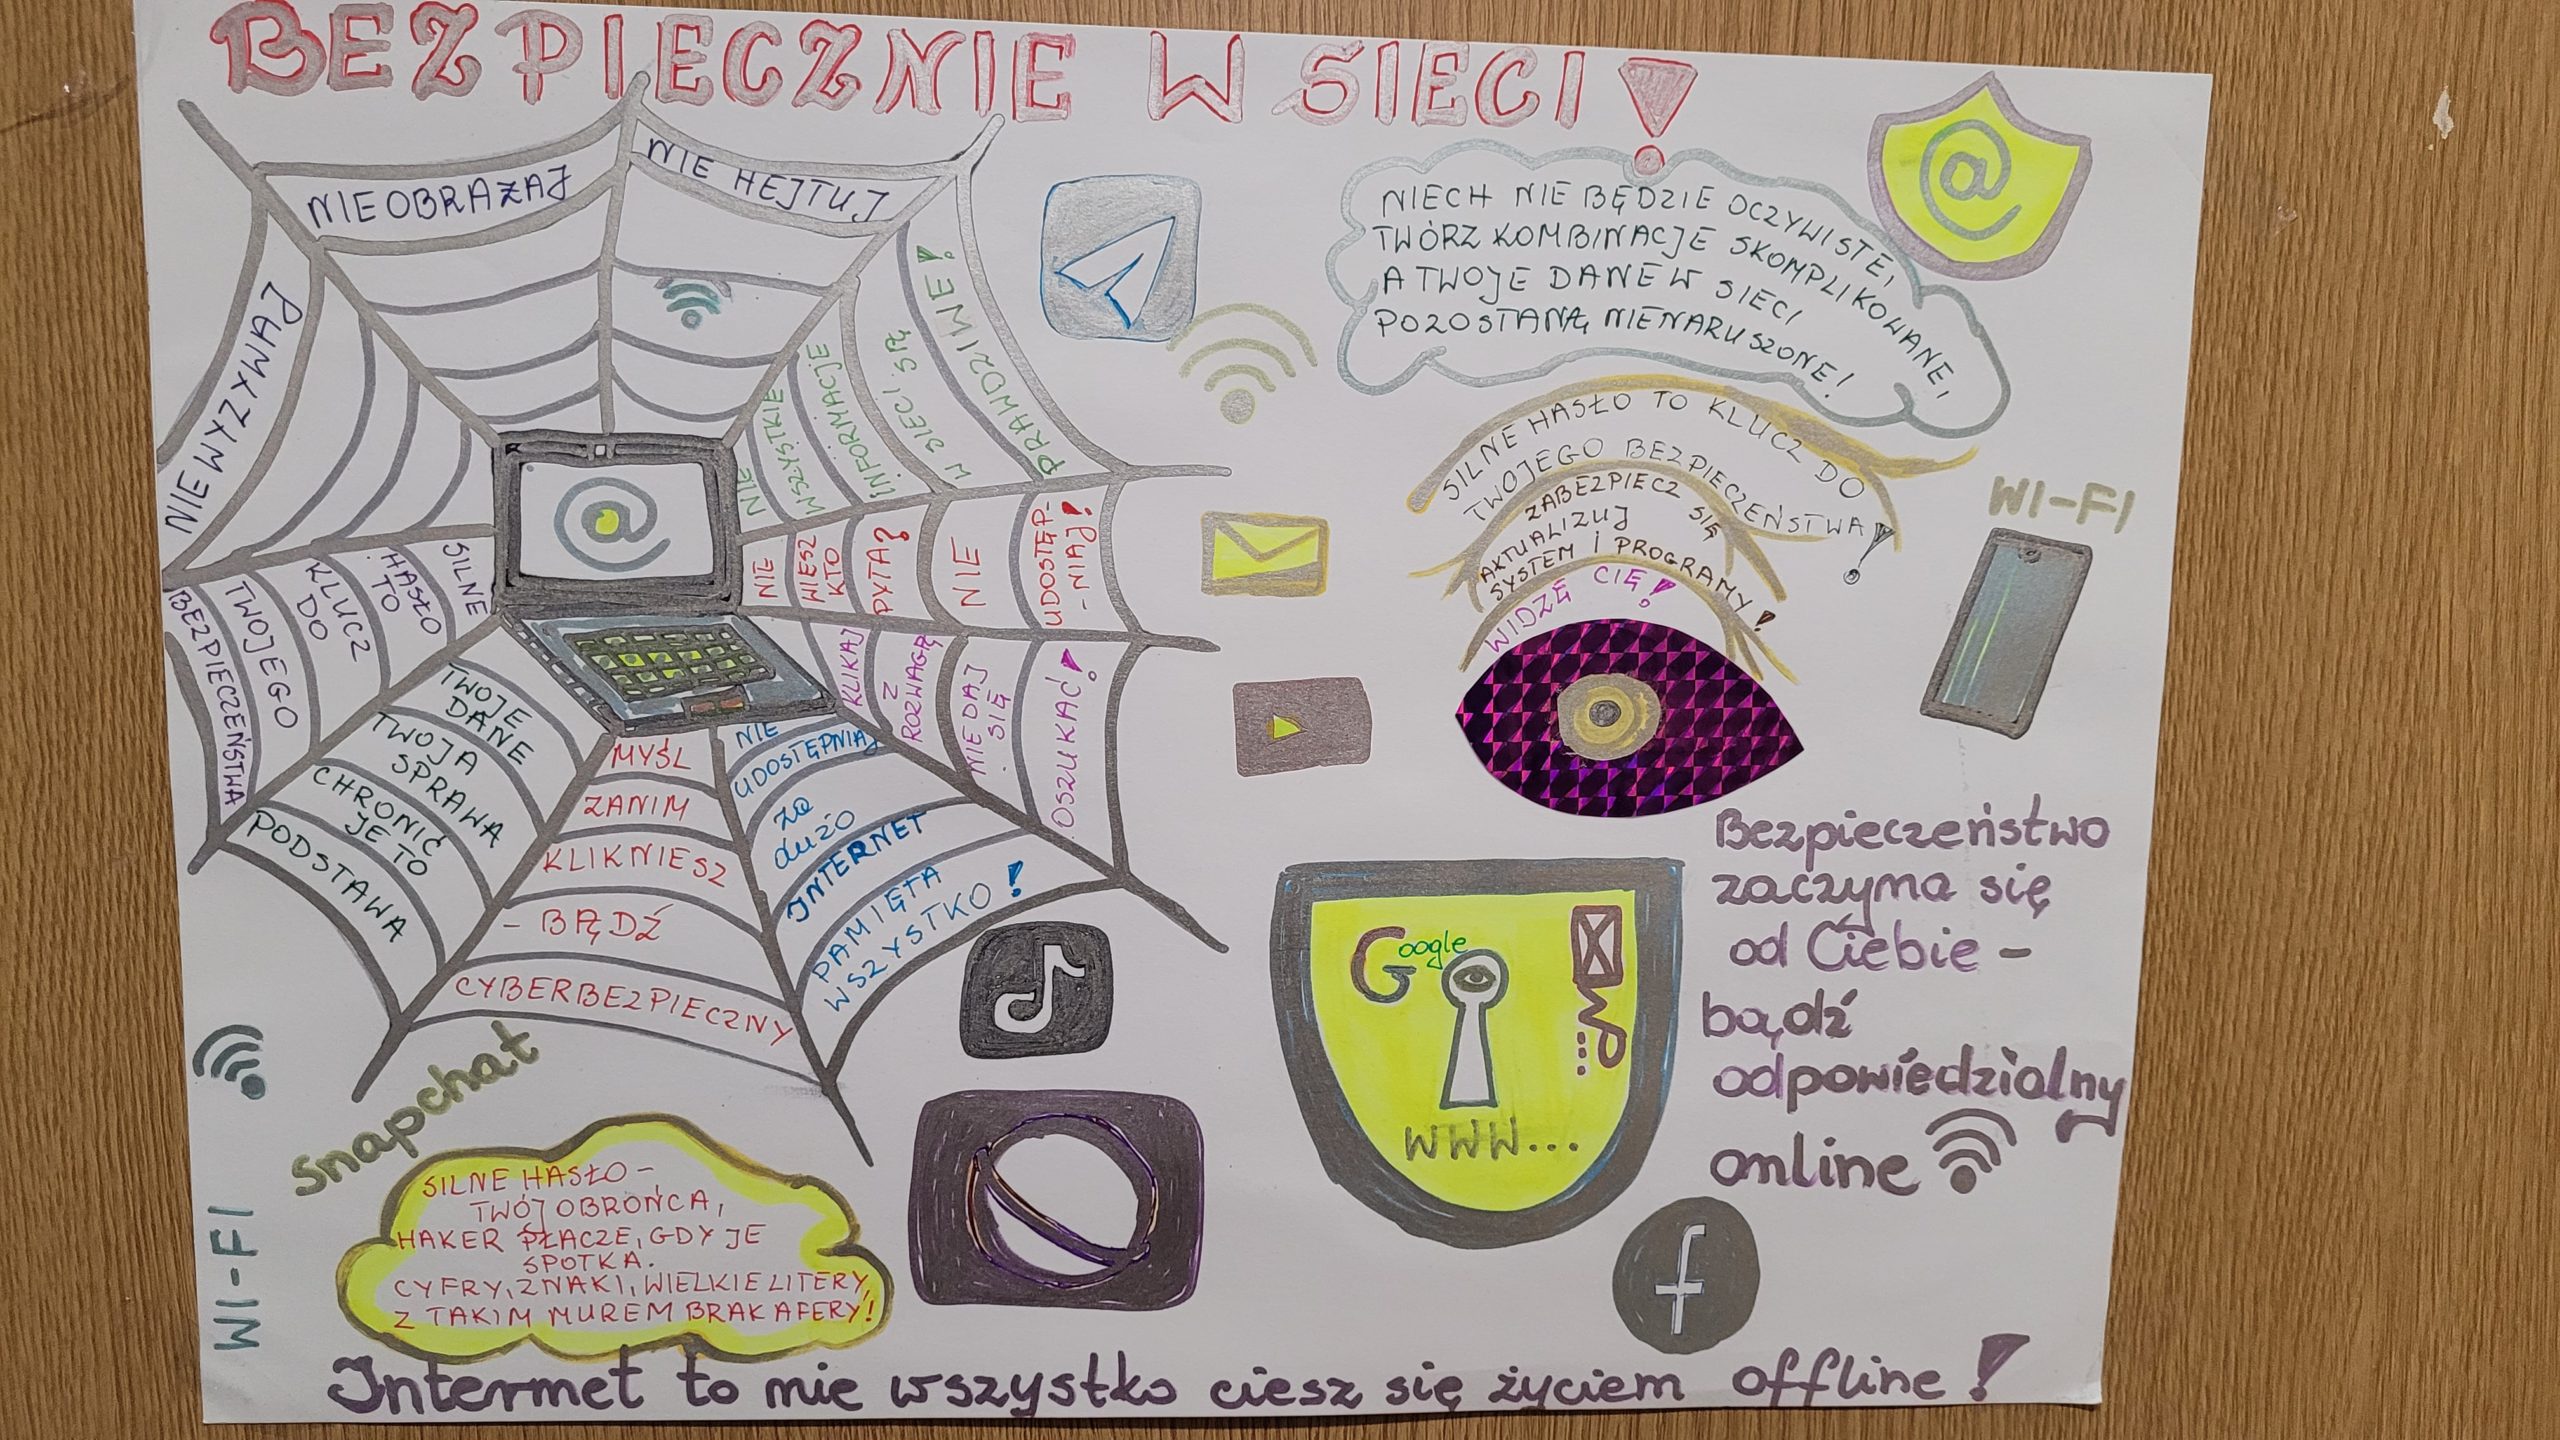 BEZPIECZNIE W SIECI!
NIE OBRAŻAJ
NIE HEJTUJ
NIE WYZYWAJ
NIE
WSZYSTKIE
INFORMACJE
W SIECI SĄ
PRAWDZIWE!
NIE
WIESZ
KTO
PYTA?
NIE
UDOSTĘP-
-NIAJ!
KLIKAJ
Z
ROZWAGĄ
NIE DAJ
SIĘ
OSZUKAĆ!
NIE
UDOSTĘPNIAJ
za
dużo
INTERNET
PAMIĘTA
WSZYSTKO!
MYŚL
ZANIM
KLIKNIESZ
- BĄDŹ
CYBERBEZPIECZNY
TWOJE
DANE
TWOJA
SPRAWA
CHRONIĆ
JE TO
PODSTAWA
SILNE
HASŁO
TO
KLUCZ
DO
TWOJEGO
BEZPIECZEŃSTWA
@
@
NIECH NIE BĘDZIE OCZYWISTE,
TWÓRZ KOMBINACJE SKOMPLIKOWANE,
A TWOJE DANE W SIECI
POZOSTANĄ NIENARUSZONE!
SILNE HASŁO TO KLUCZ DO
TWOJEGO BEZPIECZEŃSTWA!
ZABEZPIECZ SIĘ
AKTUALIZUJ
SYSTEM I PROGRAMY!
WIDZĘ CIĘ!
WI-FI
Bezpieczeństwo
zaczyna się
od Ciebie -
bądź
odpowiedzialny
online
Google
WWW...
f
Snapchat
WI-FI
SILNE HASŁO -
TWÓJ OBROŃCA,
HAKER PŁACZE, GDY JE
SPOTKA.
CYFRY, ZNAKI, WIELKIE LITERY,
Z TAKIM MUREM BRAK AFERY!
Internet to nie wszystko ciesz się życiem offline!